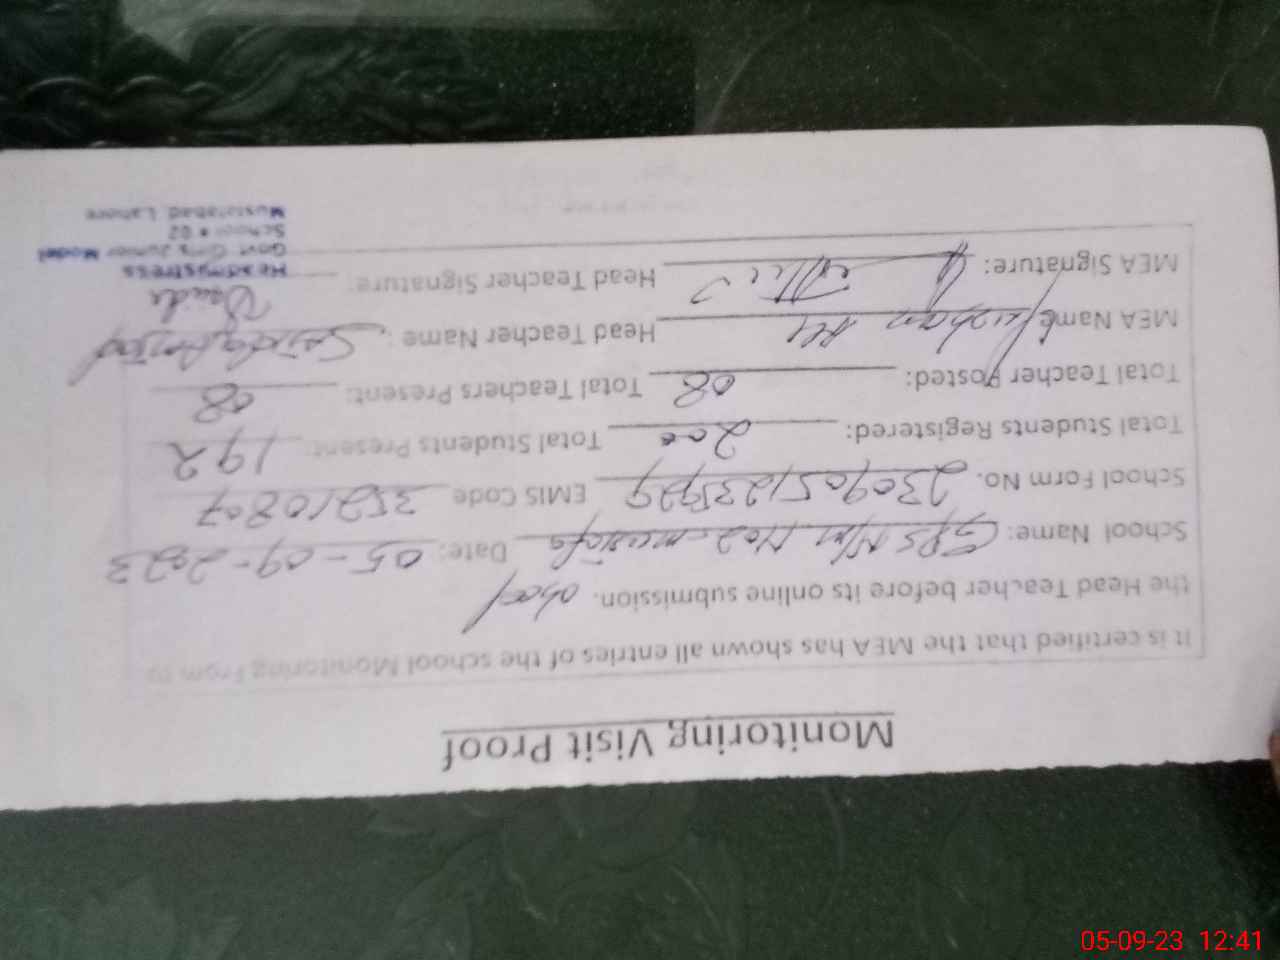 Monitoring Visit Proof
It is certified that the MEA has shown all entries of the school Monitoring From to
the Head Teacher before its online submission.
School Name: GPS No2 Date: 05-09-2023
School Form No. EMIS Code 35210807
Total Students Registered: 200 Total Students Present: 192
Total Teacher Posted: 08 Total Teachers Present: 08
MEA Name Head Teacher Name: Sajida
MEA Signature: Head Teacher Signature:
Headmistress
Govt. Girls Junior Model
School # 02
Mustafabad, Lahore
05-09-23 12:41